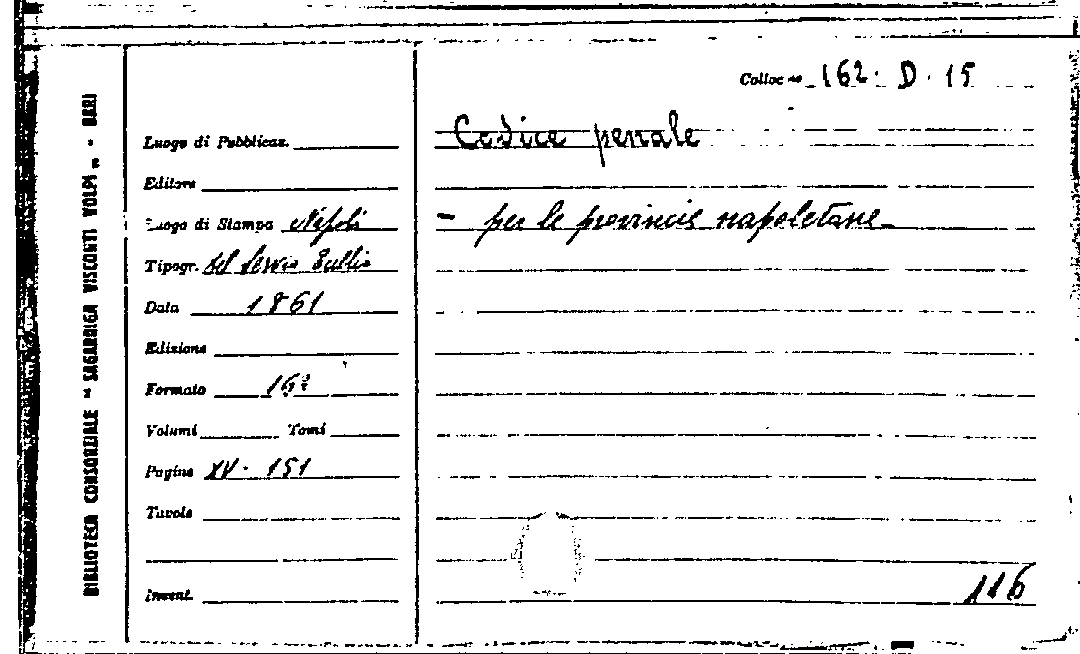 BIBLIOTECA CONSORZIALE "SAGARRIGA VISCONTI VOLPI" - BARI
Colloc 162. D. 15
Codice penale
- per le provincie napoletane
Luogo di Pubblicaz.
Editore
Luogo di Stampa Napoli
Tipogr. del
Data 1861
Edizione
Formato 16º
Volumi Tomi
Pagine XV. 151
Tavole
Invent.
116